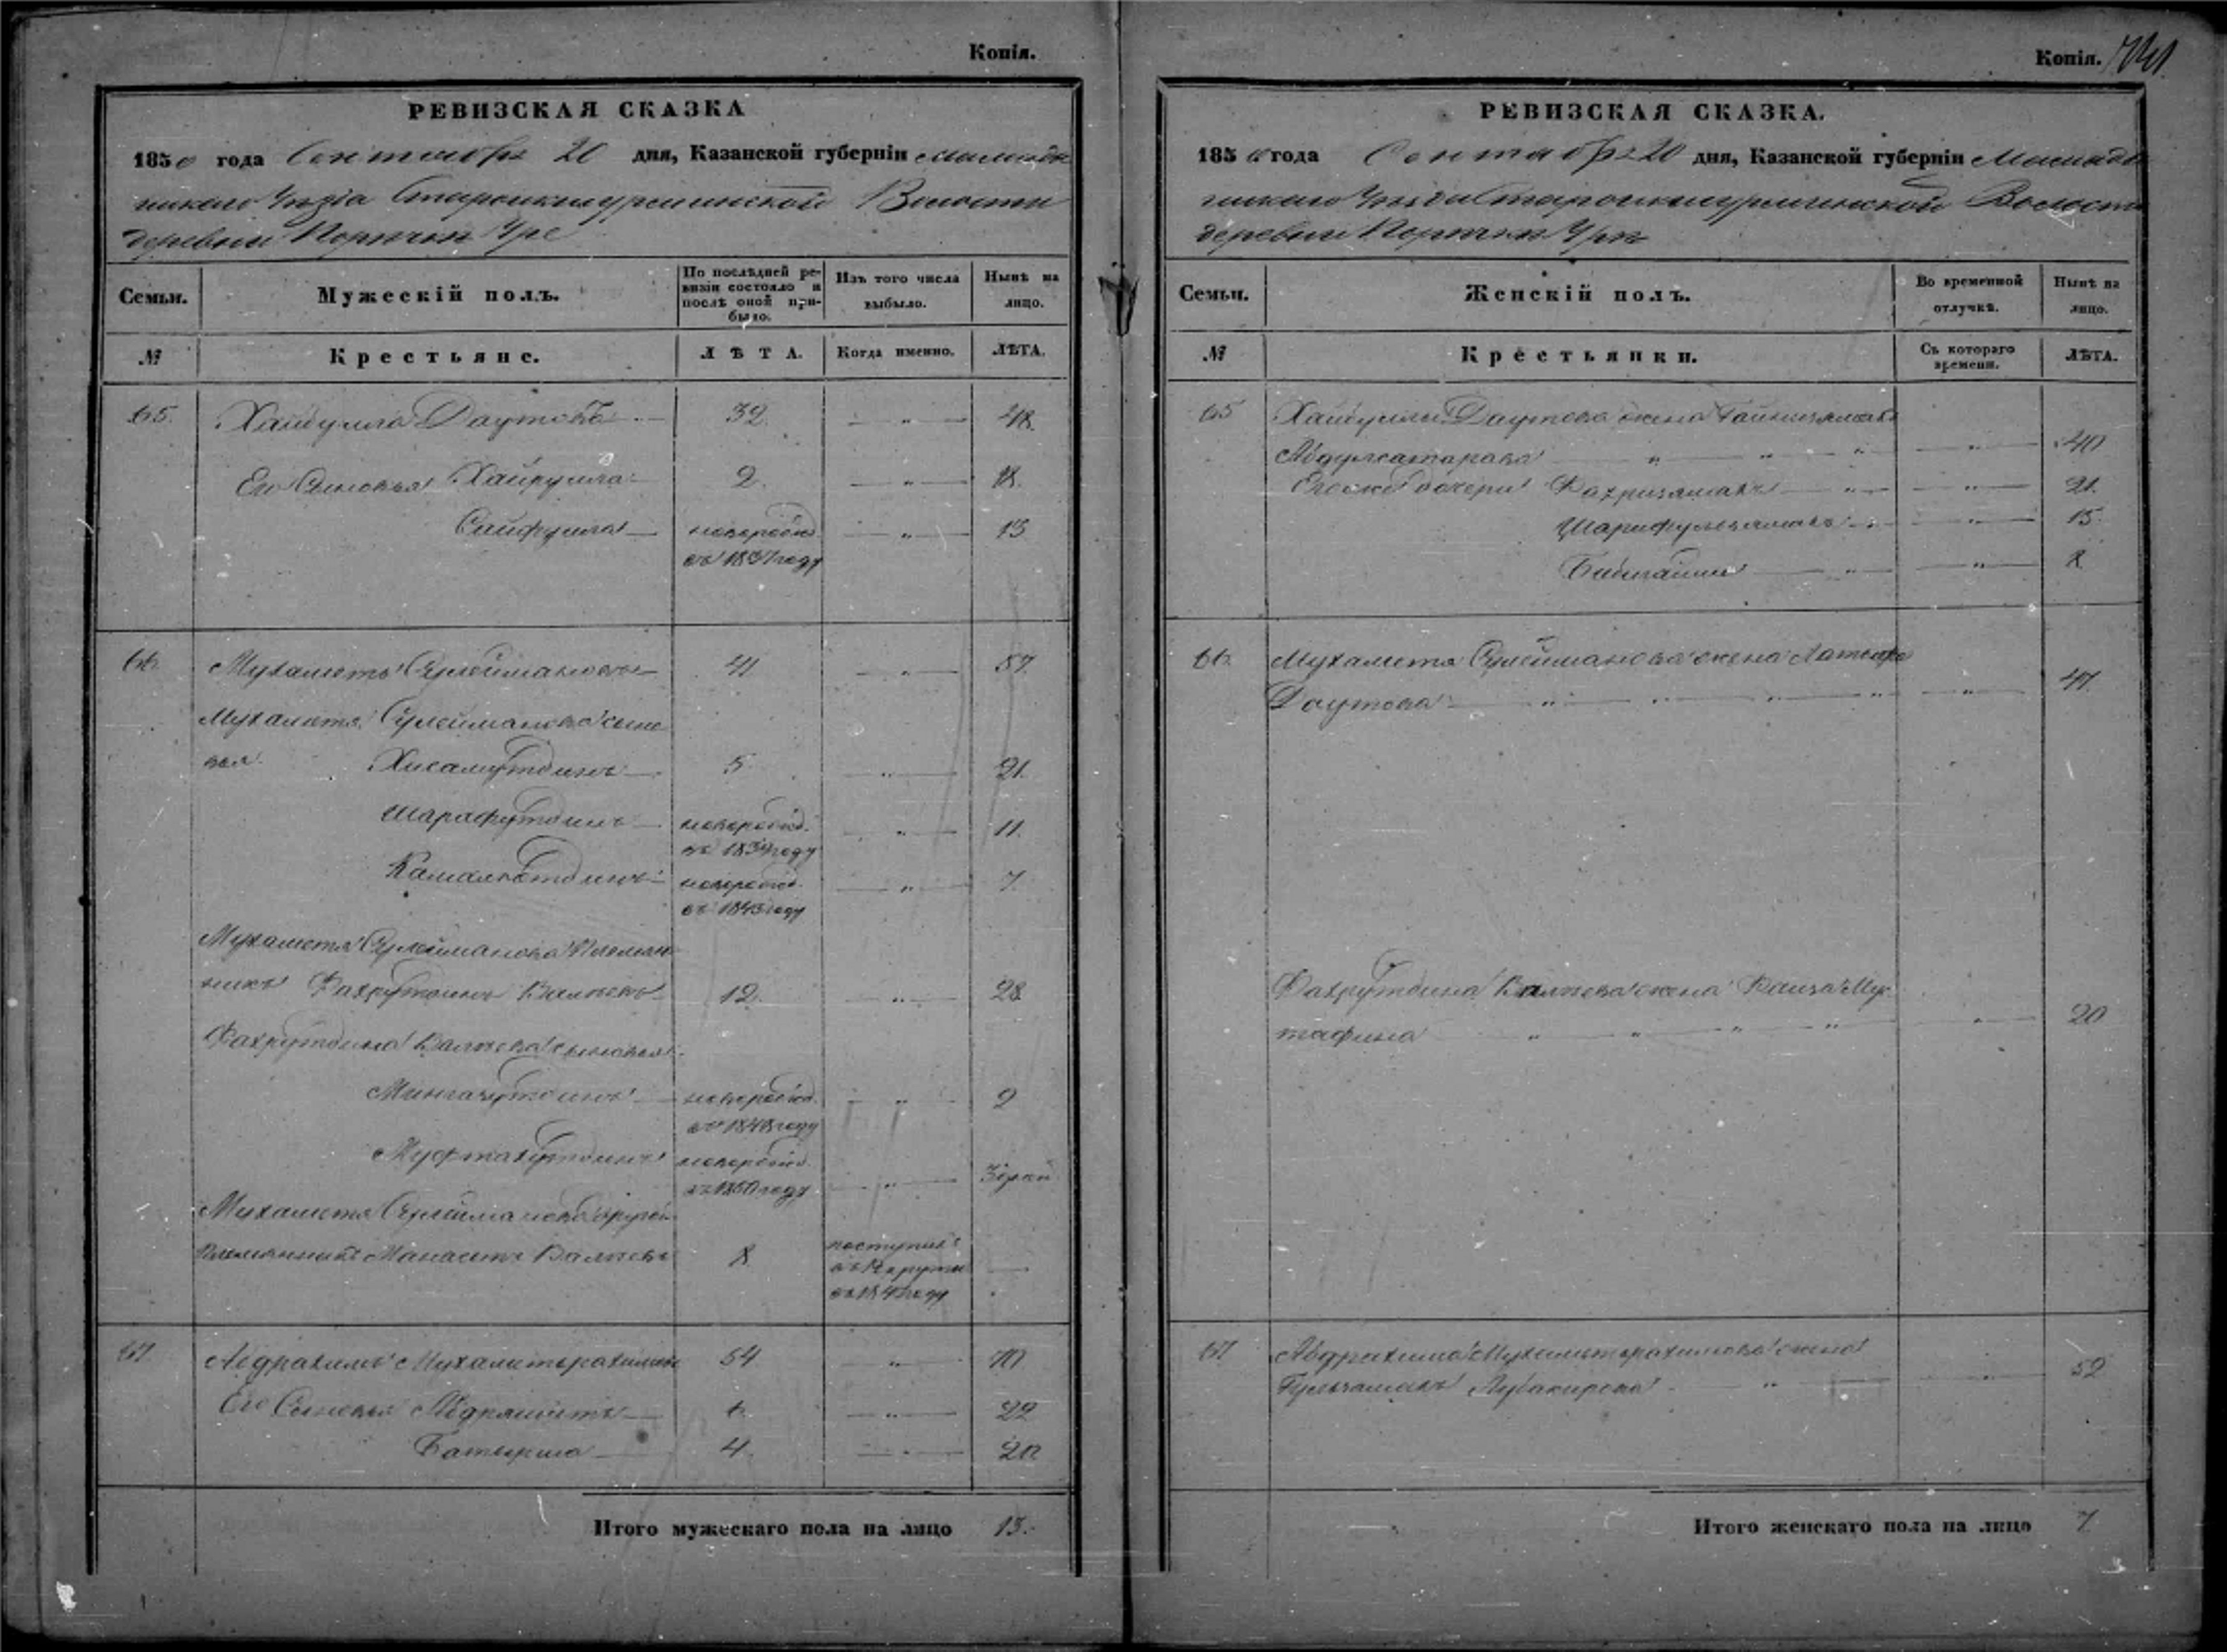 Копія.
РЕВИЗСКАЯ СКАЗКА
1850 года Сентября 20 дня, Казанской губерніи Мамадыш
скаго Уѣзда Старокишурминской Волости
деревни Портян Уре
Семьи. Мужескій полъ. По послѣдней ре-
визіи состояло и
послѣ оной при-
было. Изъ того числа
выбыло. Нынѣ на
лицо.
№ Крестьяне. ЛѢТА. Когда именно. ЛѢТА.
65. Хайбулла Даутовъ 32. — „ — 48.
Его Сыновья Хайрулла 2. — „ — 18.
Сайфулла новорожд. — „ — 13
въ 1837 году
66. Мухаметъ Сулеймановъ 41 — „ — 57.
Мухаметя Сулейманова сыно
вья Хисамутдинъ 5. — „ — 21.
Шарафутдинъ новорожд. — „ — 11.
въ 1839 году
Камалетдинъ новорожд. — „ — 7.
въ 1843 году
Мухаметя Сулейманова Племян
никъ Фахрутдинъ Валѣевъ 12. — „ — 28
Фахрутдина Валѣева сыновья
Мингазутдинъ новорожд. — „ — 2
въ 1848 году
Муфтахутдинъ новорожд. — „ —
въ 1850 году
Мухаметя Сулейманова другой
Племянникъ Манасыпъ Валѣевъ 8. поступилъ —
въ Рекруты
67. Абдрахимъ Мухаметьрахимовъ 54 — „ — 70
Его Сыновья 6. — „ — 22
Батырша 4. — „ — 20
Итого мужескаго пола на лицо 13.
Копія.
РЕВИЗСКАЯ СКАЗКА.
1850 года Сентября 20 дня, Казанской губерніи Мамады
шскаго Уѣзда Старокишурминской Волости
деревни Портян Уре
Семьи. Женскій полъ. Во временной
отлучкѣ. Нынѣ на
лицо.
№ Крестьянки. Съ котораго
времени. ЛѢТА.
65 Хайбуллы Даутова жена
Абдулсатарова — „ — „ — „ — „ — 40
Его же дочери Фахризямалъ — „ — „ — 21.
Шарифулзямалъ — „ — 15.
Бибигайши — „ — „ — 8
66. Мухаметя Сулейманова жена Латыфа
Даутова — „ — „ — „ — „ — „ — 47.
Фахрутдина Валѣева жена Ваиза Мус
тафина „ — „ — „ — „ — „ — 20
67 Абдрахима Мухаметьрахимова жена
Гульзамалъ Абубакирова „ — „ — 52
Итого женскаго пола на лицо 7.